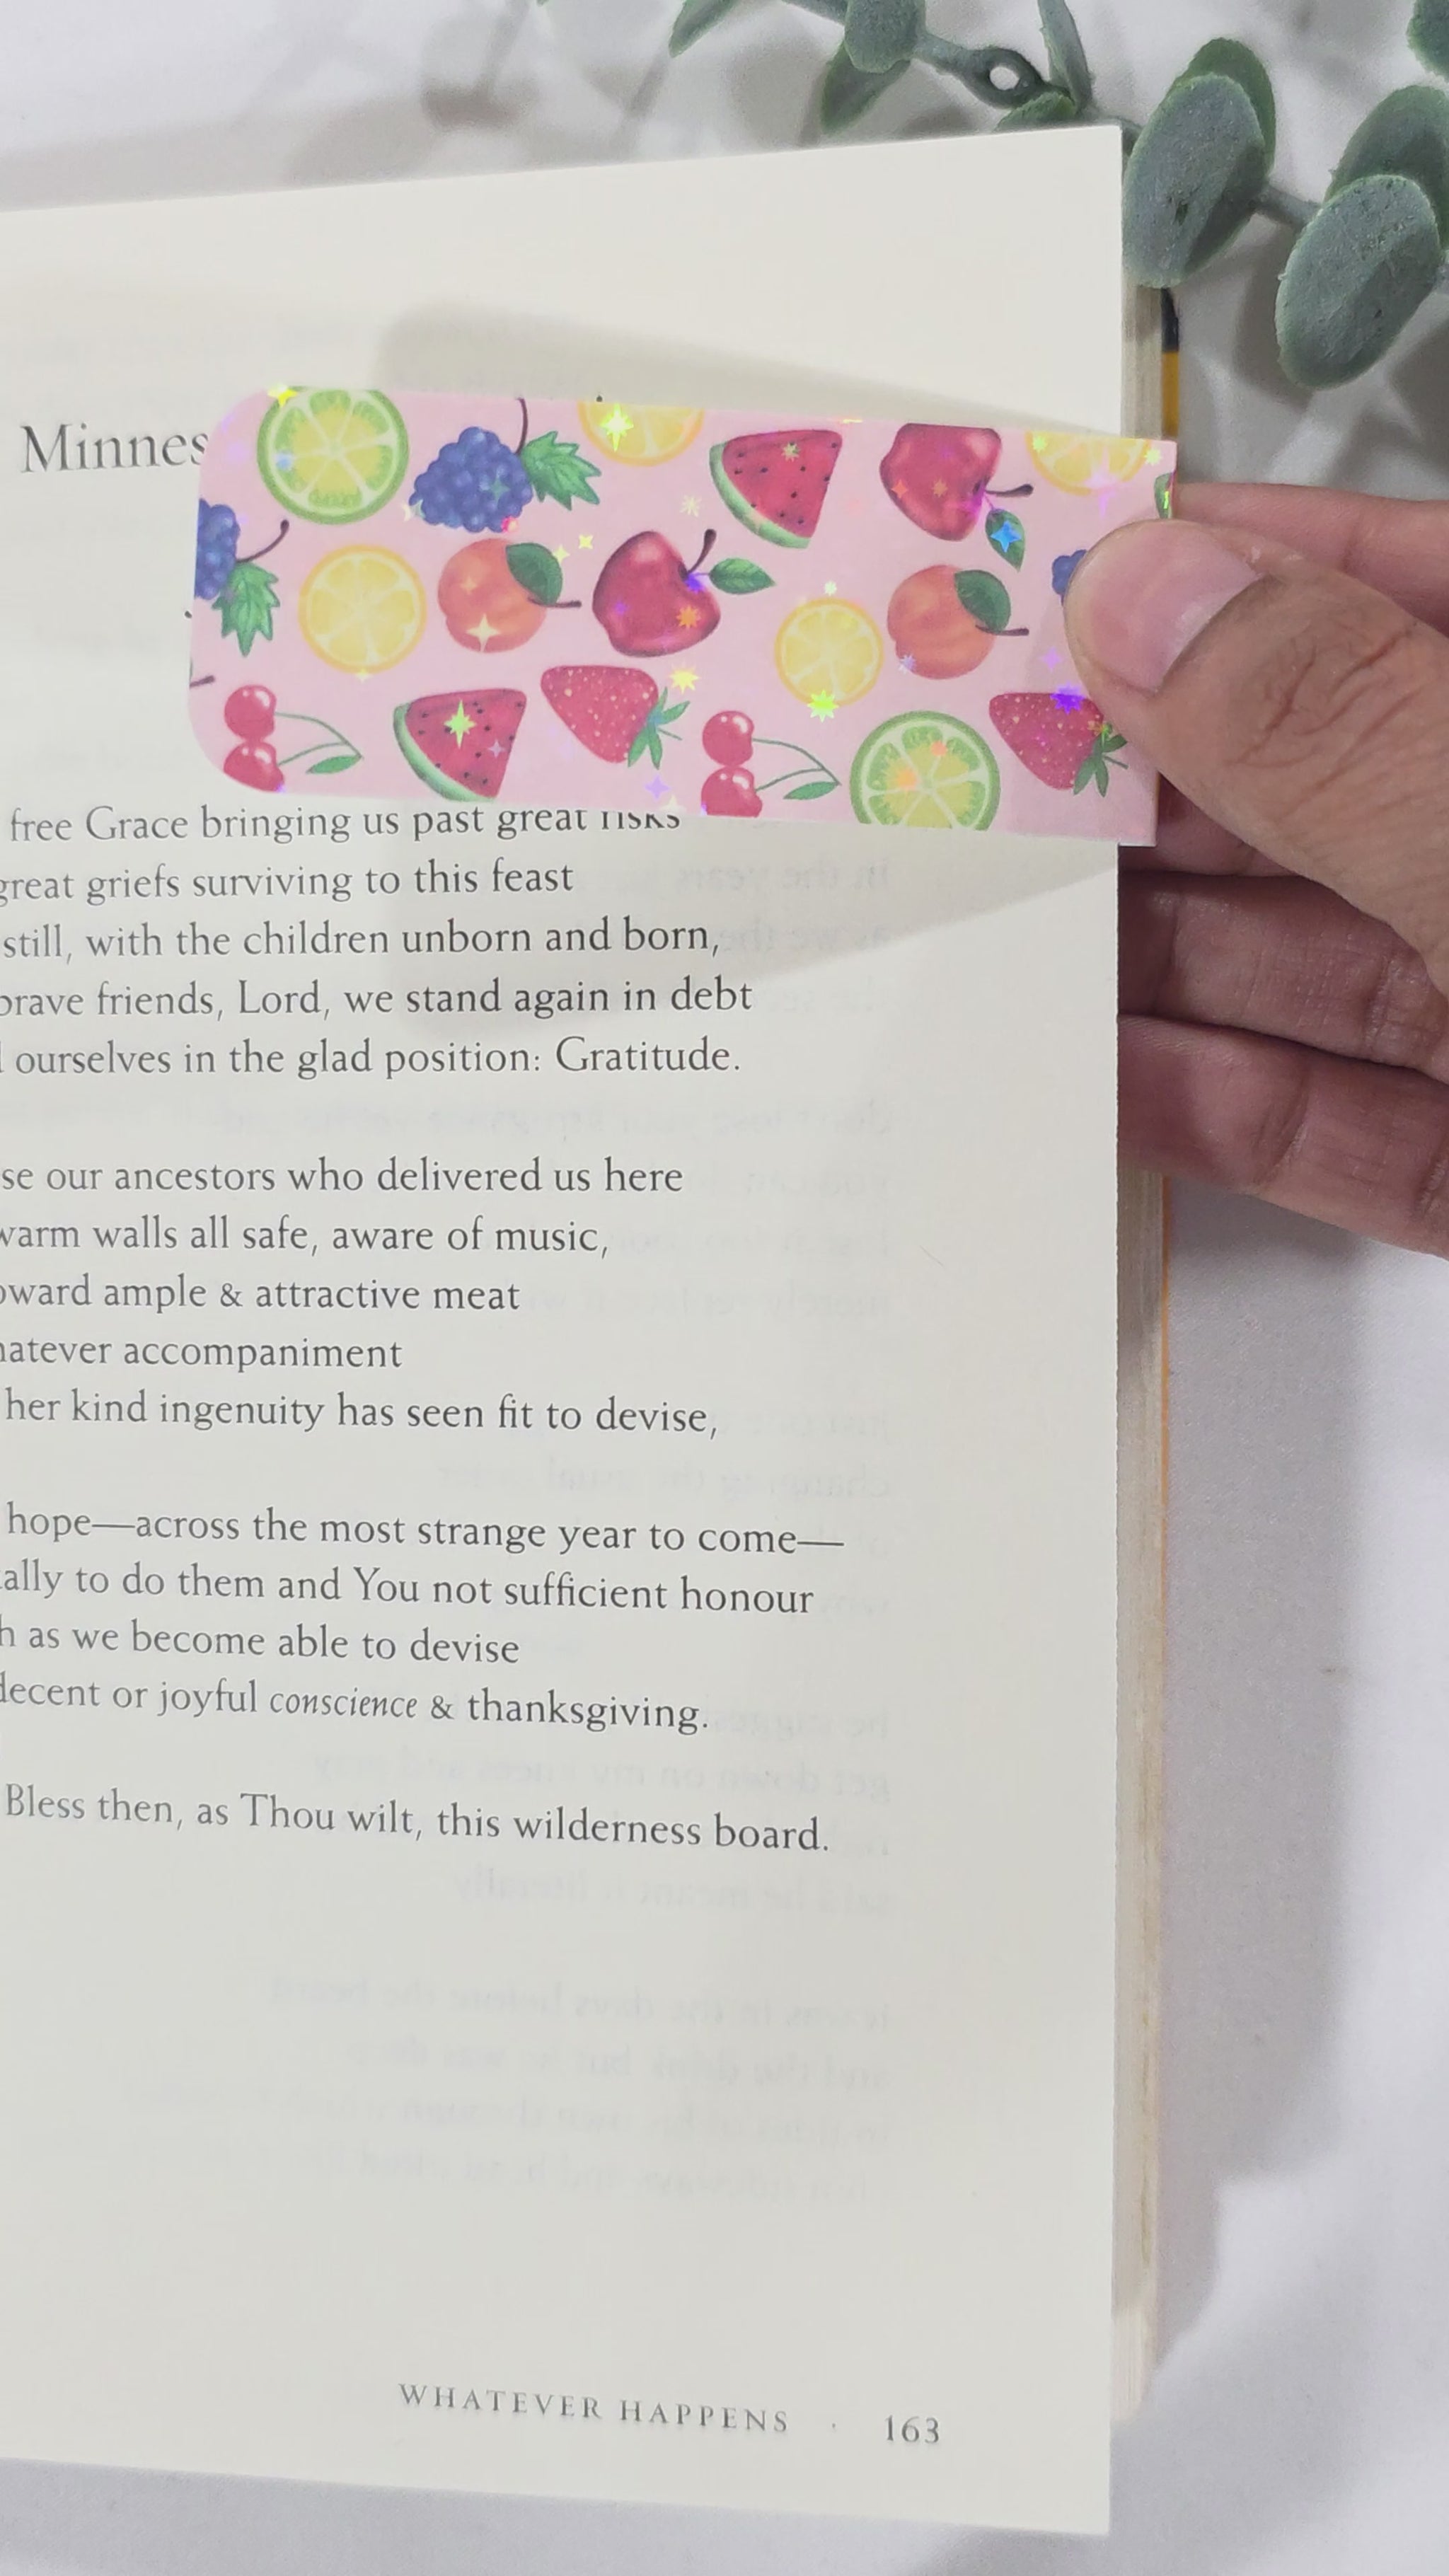 Minnes
free Grace bringing us past great risks
great griefs surviving to this feast
still, with the children unborn and born,
brave friends, Lord, we stand again in debt
ourselves in the glad position: Gratitude.
se our ancestors who delivered us here
warm walls all safe, aware of music,
oward ample & attractive meat
hatever accompaniment
her kind ingenuity has seen fit to devise,
hope—across the most strange year to come—
ally to do them and You not sufficient honour
h as we become able to devise
decent or joyful conscience & thanksgiving.
Bless then, as Thou wilt, this wilderness board.
WHATEVER HAPPENS · 163